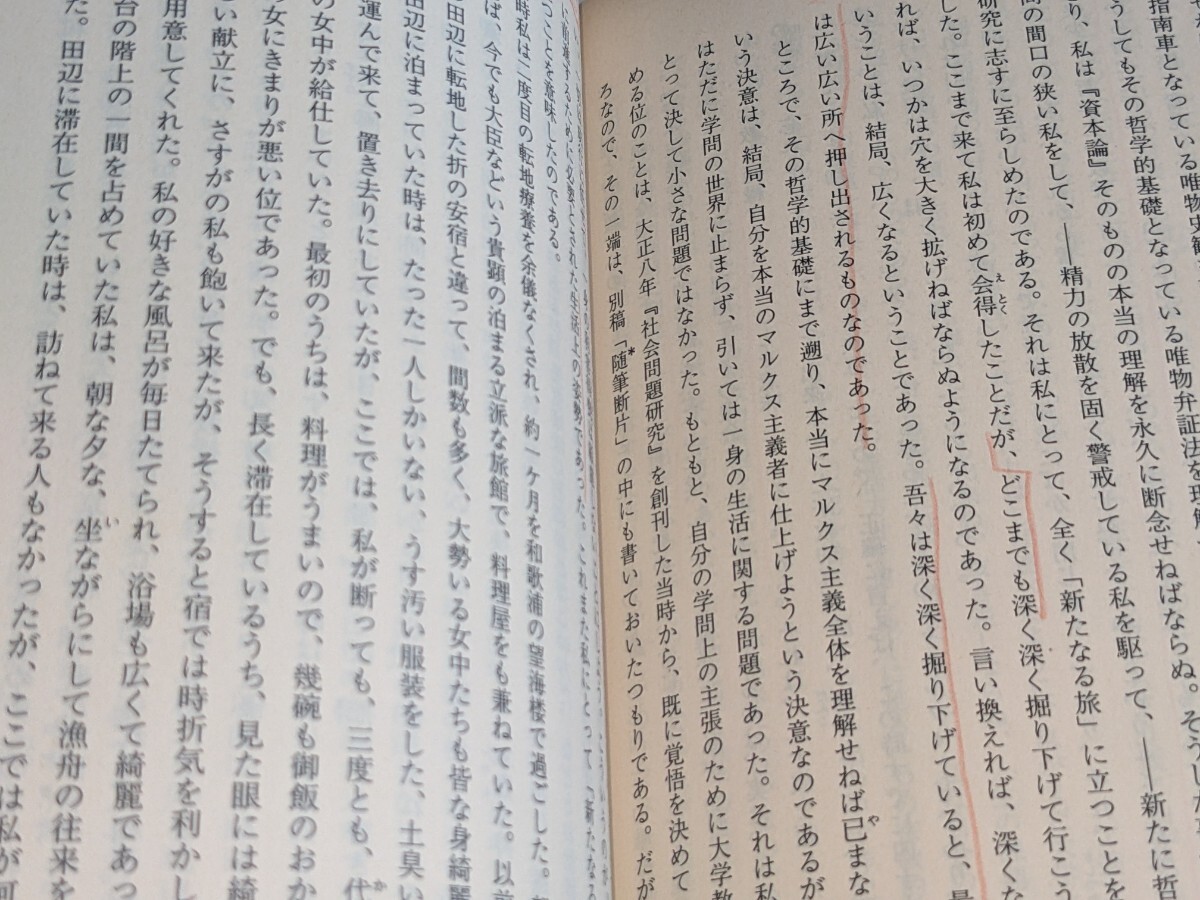 指南車となっている唯物史観、
うしてもその哲学的基礎となっている唯物弁証法を理解
り、私は『資本論』そのものの本当の理解を永久に断念せねばならぬ。そう
問の間口の狭い私をして、――精力の放散を固く警戒している私を駆って、――新たに哲
研究に志すに至らしめたのである。それは私にとって、全く「新たなる旅」に立つことを
した。ここまで来て私は初めて会得したことだが、どこまでも深く深く掘り下げて行こう
れば、いつかは穴を大きく拡げねばならぬようになるのであった。言い換えれば、深くな
いうことは、結局、広くなるということであった。吾々は深く深く掘り下げていると、
は広い広い所へ押し出されるものなのであった。
ところで、その哲学的基礎にまで遡り、本当にマルクス主義全体を理解せねば已まな
いう決意は、結局、自分を本当のマルクス主義者に仕上げようという決意なのであるが
はただに学問の世界に止まらず、引いては一身の生活に関する問題であった。それは私
とって決して小さな問題ではなかった。もともと、自分の学問上の主張のために大学教
める位のことは、大正八年『社会問題研究』を創刊した当時から、既に覚悟を決めて
ろなので、その一端は、別稿「随筆断片」の中にも書いておいたつもりである。だが
であった。これまた私にとって「新たなる
つことを意味したのである。
時私は二度目の転地療養を余儀なくされ、約一ケ月を和歌浦の望海楼で過ごした。
ば、今でも大臣などいう貴顕の泊まる立派な旅館で、料理屋をも兼ねていた。以前
田辺に転地した折の安宿と違って、間数も多く、大勢いる女中たちも皆な身綺麗
田辺に泊まっていた時は、たった一人しかいない、うす汚い服装をした、土臭い
運んで来て、置き去りにしていたが、ここでは、私が断っても、三度とも、代
の女中が給仕していた。最初のうちは、料理がうまいので、幾碗も御飯のおか
の女にきまりが悪い位であった。でも、長く滞在しているうち、見た眼には綺
い献立に、さすがの私も飽いて来たが、そうすると宿では時折気を利かし
用意してくれた。私の好きな風呂が毎日たてられ、浴場も広くて綺麗であっ
台の階上の一間を占めていた私は、朝な夕な、坐ながらにして漁舟の往来を
た。田辺に滞在していた時は、訪ねて来る人もなかったが、ここでは私が